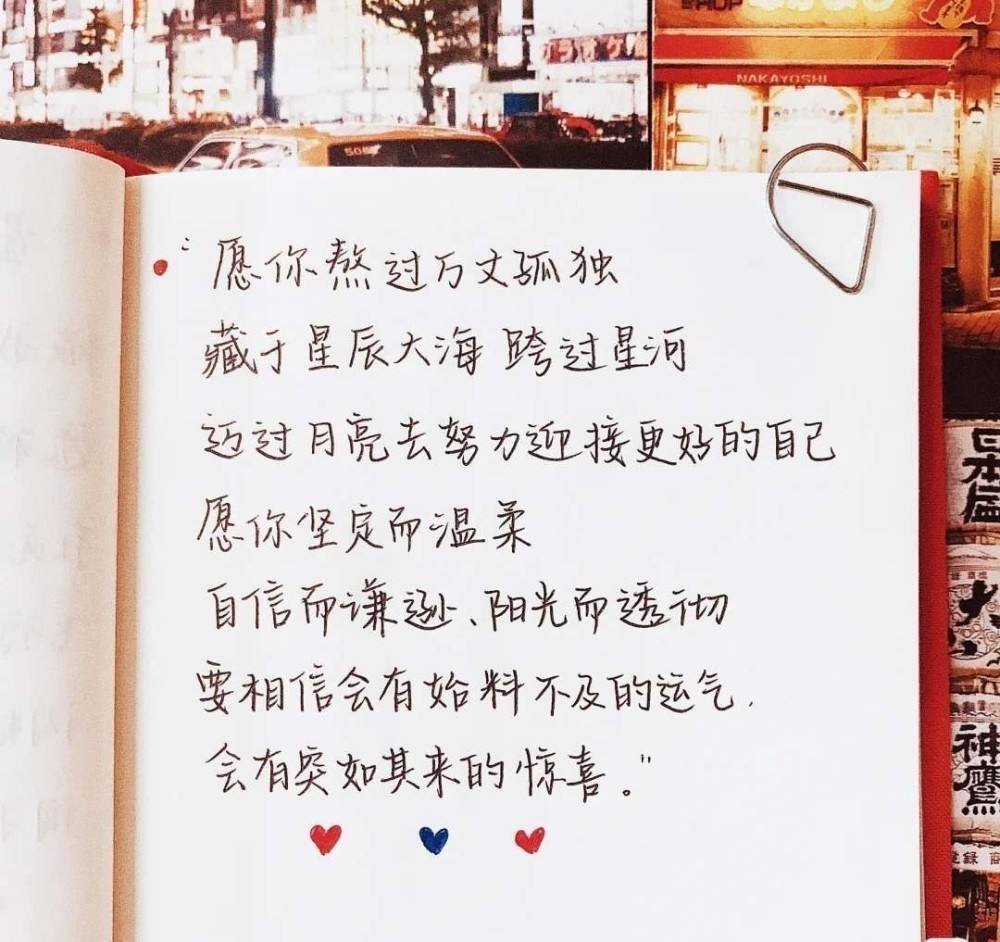 SHOP
カラオケ館
NAKAYOSHI
505
“愿你熬过万丈孤独
藏于星辰大海 跨过星河
迈过月亮去努力迎接更好的自己
愿你坚定而温柔
自信而谦逊、阳光而透彻
要相信会有始料不及的运气.
会有突如其来的惊喜。”
日本盛
神鷹
登録